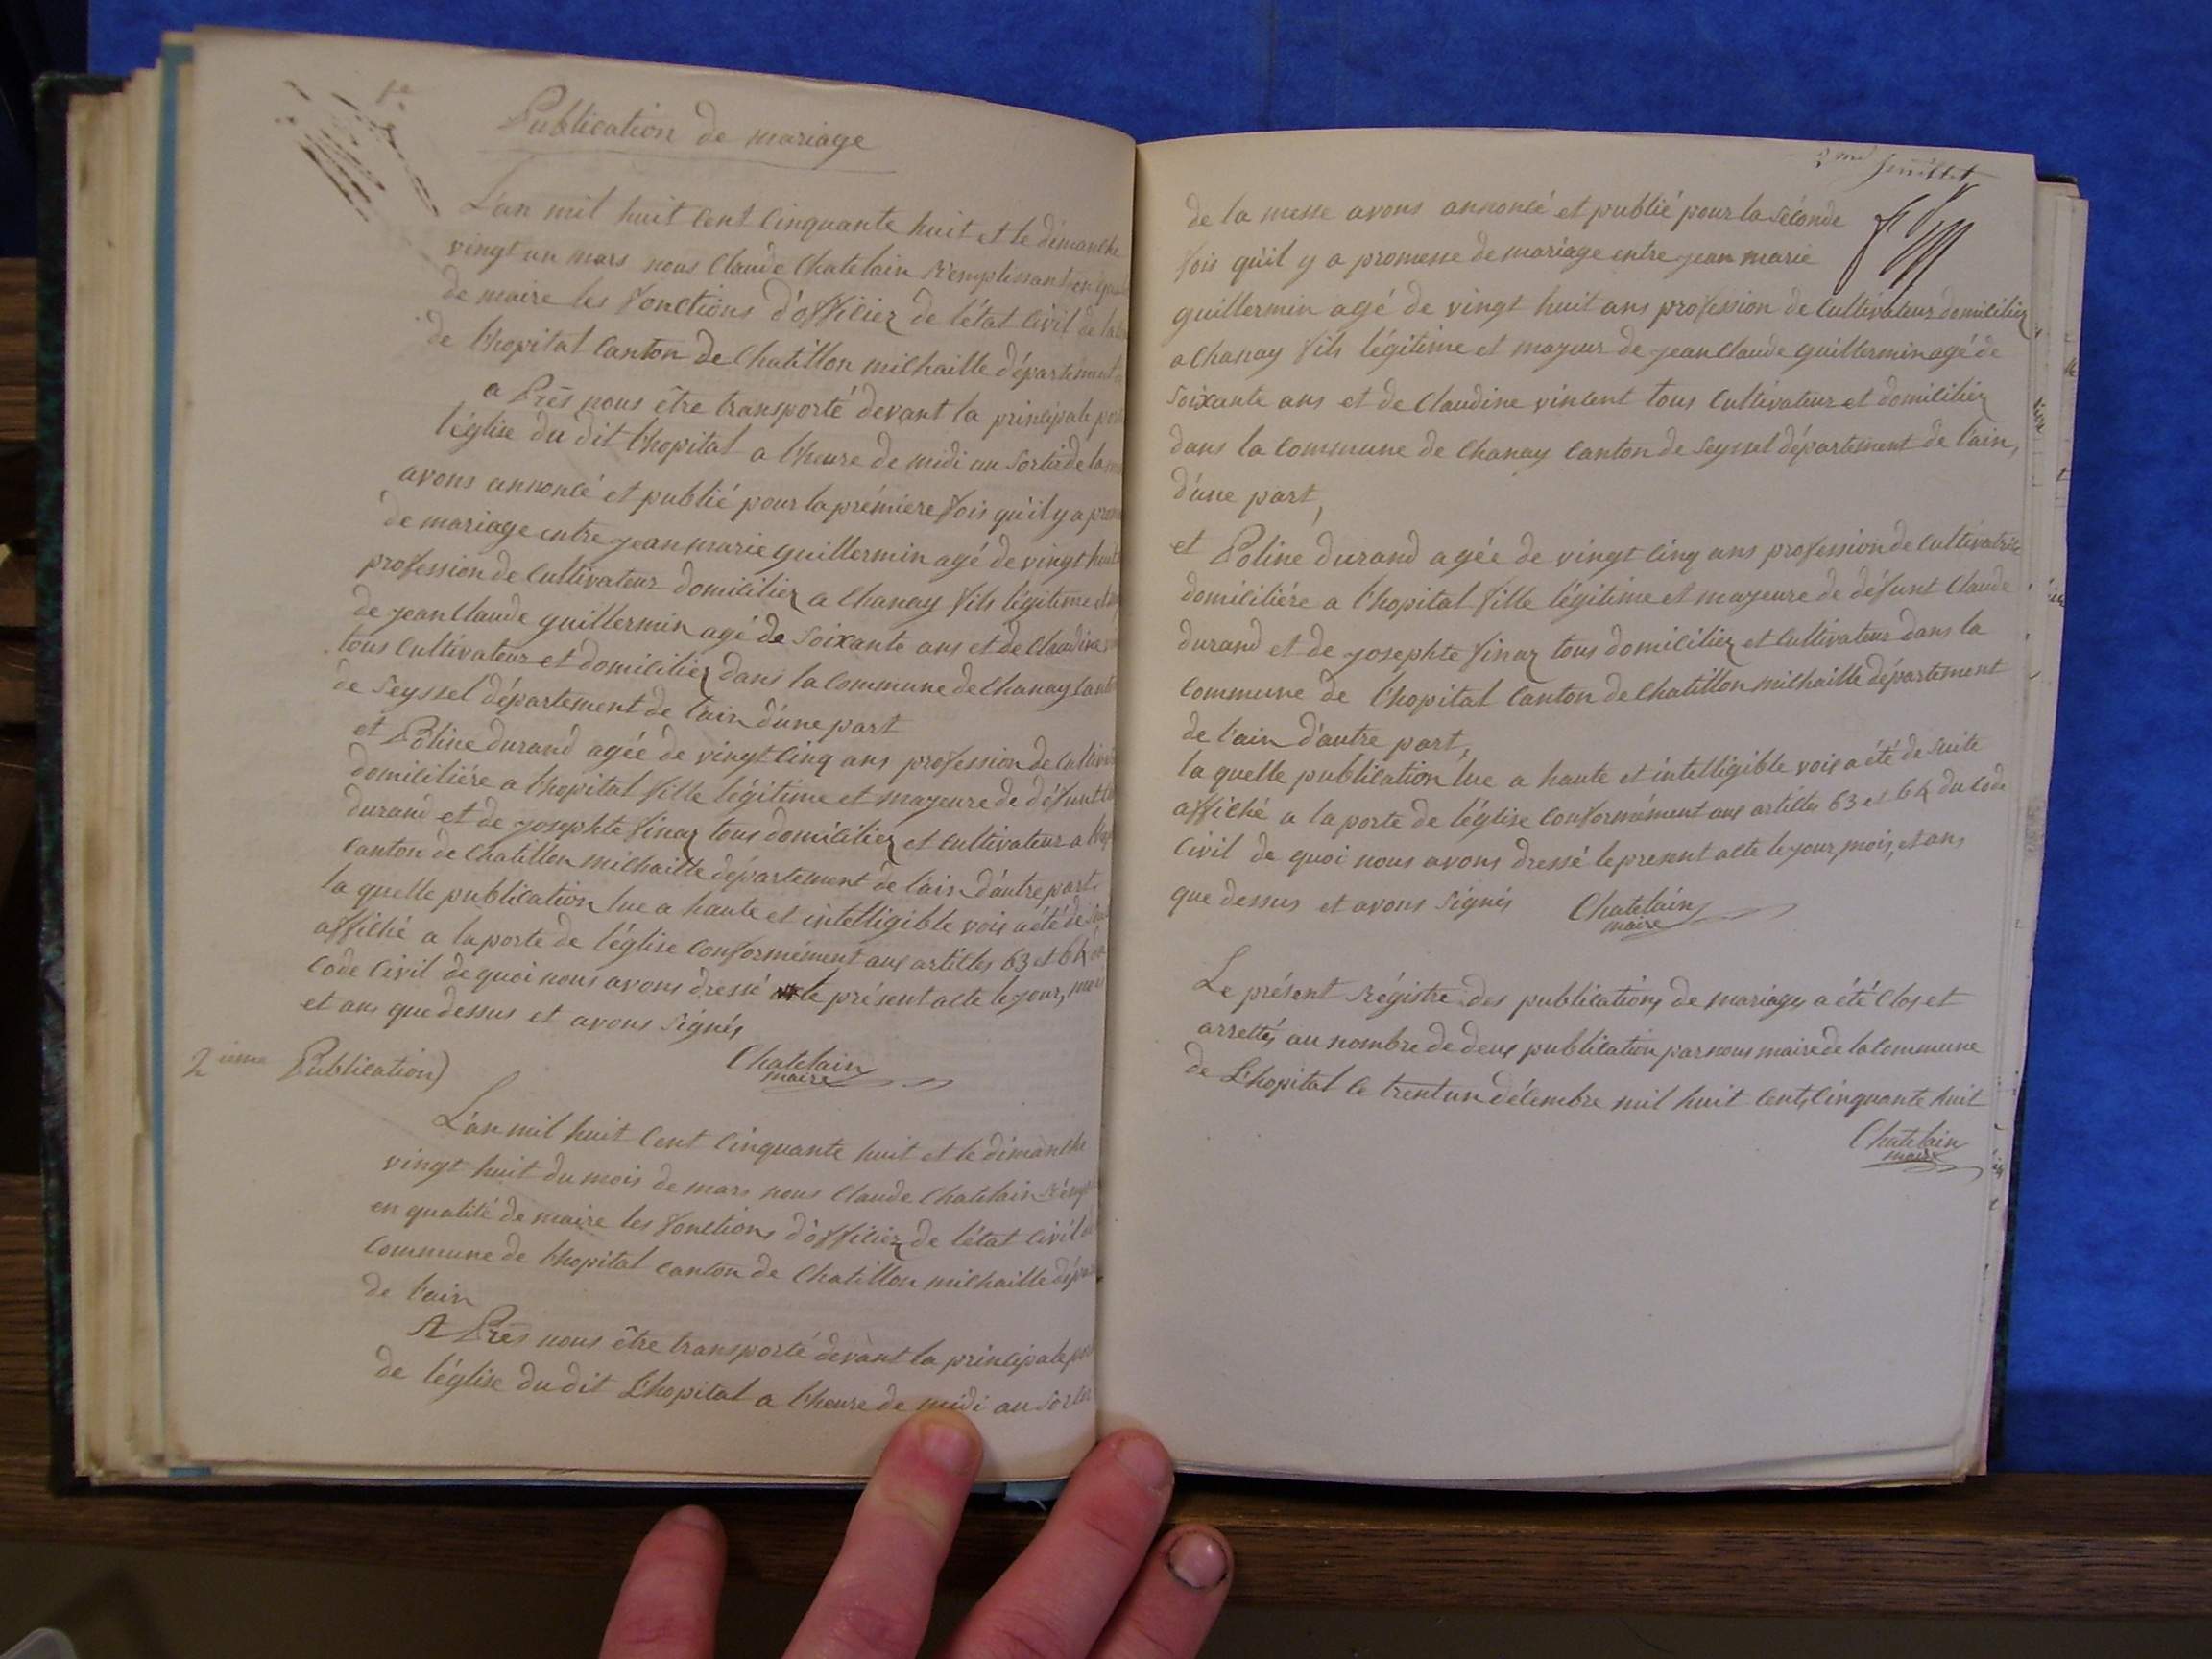 1e
Publication de mariage
L'an mil huit cent cinquante huit et le dimanche
vingt un mars nous Claude Chatelain Remplissant en
de maire les fonctions d'officiez de l'état civil de
de l'hopital canton de Chatillon michaille département
a Près nous être transporté devant la principale
l'église du dit l'hopital a l'heure de midi au sortir de la
avons annoncé et publié pour la prémière fois qu'il y a
de mariage entre jean marie guillermin agé de vingt huit
profession de cultivateur domicilier a Chanay fils légitime et
de jean Claude guillermin agé de soixante ans et de Claudine
tous cultivateur et domicilier dans la commune de Chanay
de Seyssel département de l'ain d'une part
et Poline durand agée de vingt cinq ans profession de
domicilière a l'hopital fille légitime et mageure de défunt
durand et de josephte finaz tous domicilier et cultivateur a
canton de chatillon michaille département de l'ain d'autre part.
la quelle publication lue a haute et intelligible voix a été de
affiché a la porte de l'église conformément aux articles 63 et 64
code civil de quoi nous avons dressé le présent acte le jour, mois
et ans que dessus et avons signés
Chatelain
maire
2ieme Publication)
L'an mil huit cent cinquante huit et le dimanche
vingt huit du mois de mars nous Claude Chatelain
en qualité de maire les fonctions d'officiez de l'état civil
commune de l'hopital canton de Chatillon michaille
de l'ain
A Près nous être transporté devant la principale
de l'église du dit L'hopital a l'heure de midi au sortir
2me feuillet
de la messe avons annoncé et publié pour la séconde
fois qu'il y a promesse de mariage entre jean marie
guillermin agé de vingt huit ans profession de cultivateur domicilier
a Chanay fils légitime et mageur de jean Claude guillermin agé de
soixante ans et de Claudine vincent tous cultivateur et domicilier
dans la commune de Chanay canton de Seyssel département de l'ain,
d'une part,
et Poline durand agée de vingt cinq ans profession de cultivatrice
domicilière a l'hopital fille légitime et mageure de défunt Claude
durand et de josephte finaz tous domicilier et cultivateur dans la
commune de l'hopital canton de Chatillon michaille département
de l'ain d'autre part,
la quelle publication lue a haute et intelligible voix a été de suite
affiché a la porte de l'église conformément aux articles 63 et 64 du code
civil de quoi nous avons dressé le present acte le jour, mois, et ans
que dessus et avons signés
Chatelain
maire
Le présent Régistre des publications de mariages a été clos et
arrettés au nombre de deux publication par nous maire de la commune
de L'hopital le trent un décembre mil huit cent, cinquante huit
Chatelain
maire